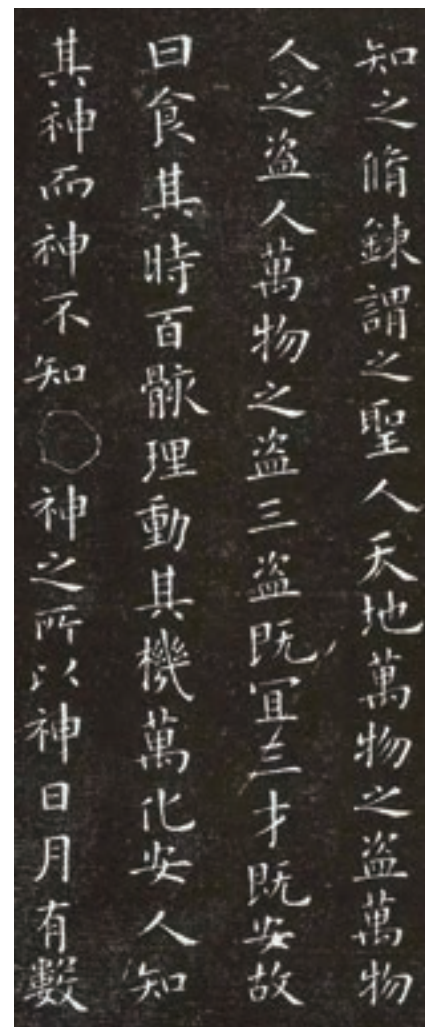 知之脩鍊謂之聖人天地萬物之盜萬物
人之盜人萬物之盜三盜既冝三才既安故
曰食其時百骸理動其機萬化安人知
其神而神不知神之所以神日月有數